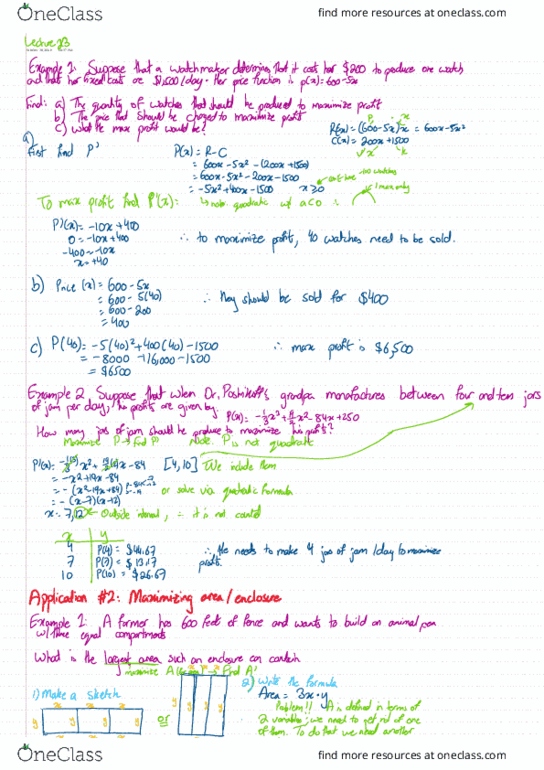 OneClass
find more resources at oneclass.com
Lecture 23
Example 1: Suppose that a watchmaker determines that it costs her $200 to produce one watch
and that her fixed costs are $1,500/day. Her price function is p(x)=600-5x
Find: a) The quantity of watches that should be produced to maximize profit
b) The price that should be charged to maximize profit
c) What the max profit would be?
R(x)=(600-5x)x = 600x-5x²
C(x)=200x+1500
a)
First find P'
P(x)=R-C
=600x-5x²-(200x+1500)
=600x-5x²-200x-1500
=-5x²+400x-1500 x≥0
1 max only
To max profit find P'(x): note: quadratic w/ a<0 ∴
P'(x)=-10x+400
0=-10x+400
-400=-10x
x=+40
∴ to maximize profit, 40 watches need to be sold.
b) Price(x)=600-5x
=600-5(40)
=600-200
=400
∴ They should be sold for $400
c) P(40)=-5(40)²+400(40)-1500
=-8000+16,000-1500
=$6500
∴ max profit is $6,500
Example 2: Suppose that when Dr. grandpa manufactures between four and ten jars
of jam per day, his profits are given by: P(x)=-1/3x³+19/2x²-84x+250
How many jars of jam should be produce to maximize his profit?
Maximize P → find P' Note: P is not quadratic
P'(x)=-1(3)/3x²+19(2)/2x-84 [4,10] We include them
=-x²+19x-84
=-(x²-19x+84) or solve via quadratic formula
=-(x-7)(x-12)
x=7,12 Outside interval, ∴ it is not counted
x y
4 P(4)=$44.67
7 P(7)=$13.17
10 P(10)=$26.67
∴ He needs to make 4 jars of jam/day to maximize
profit.
Application #2: Maximizing area/enclosure
Example 1: A farmer has 600 feet of fence and wants to build an animal pen
w/ three equal compartments
What is the largest area such an enclosure can contain
maximize A → Find A'
1) Make a sketch
or
2) Write the formula
Area = 3x·y
Problem!! A is defined in terms of
2 variables; we need to get rid of one
of them. To do that we need another
OneClass
find more resources at oneclass.com